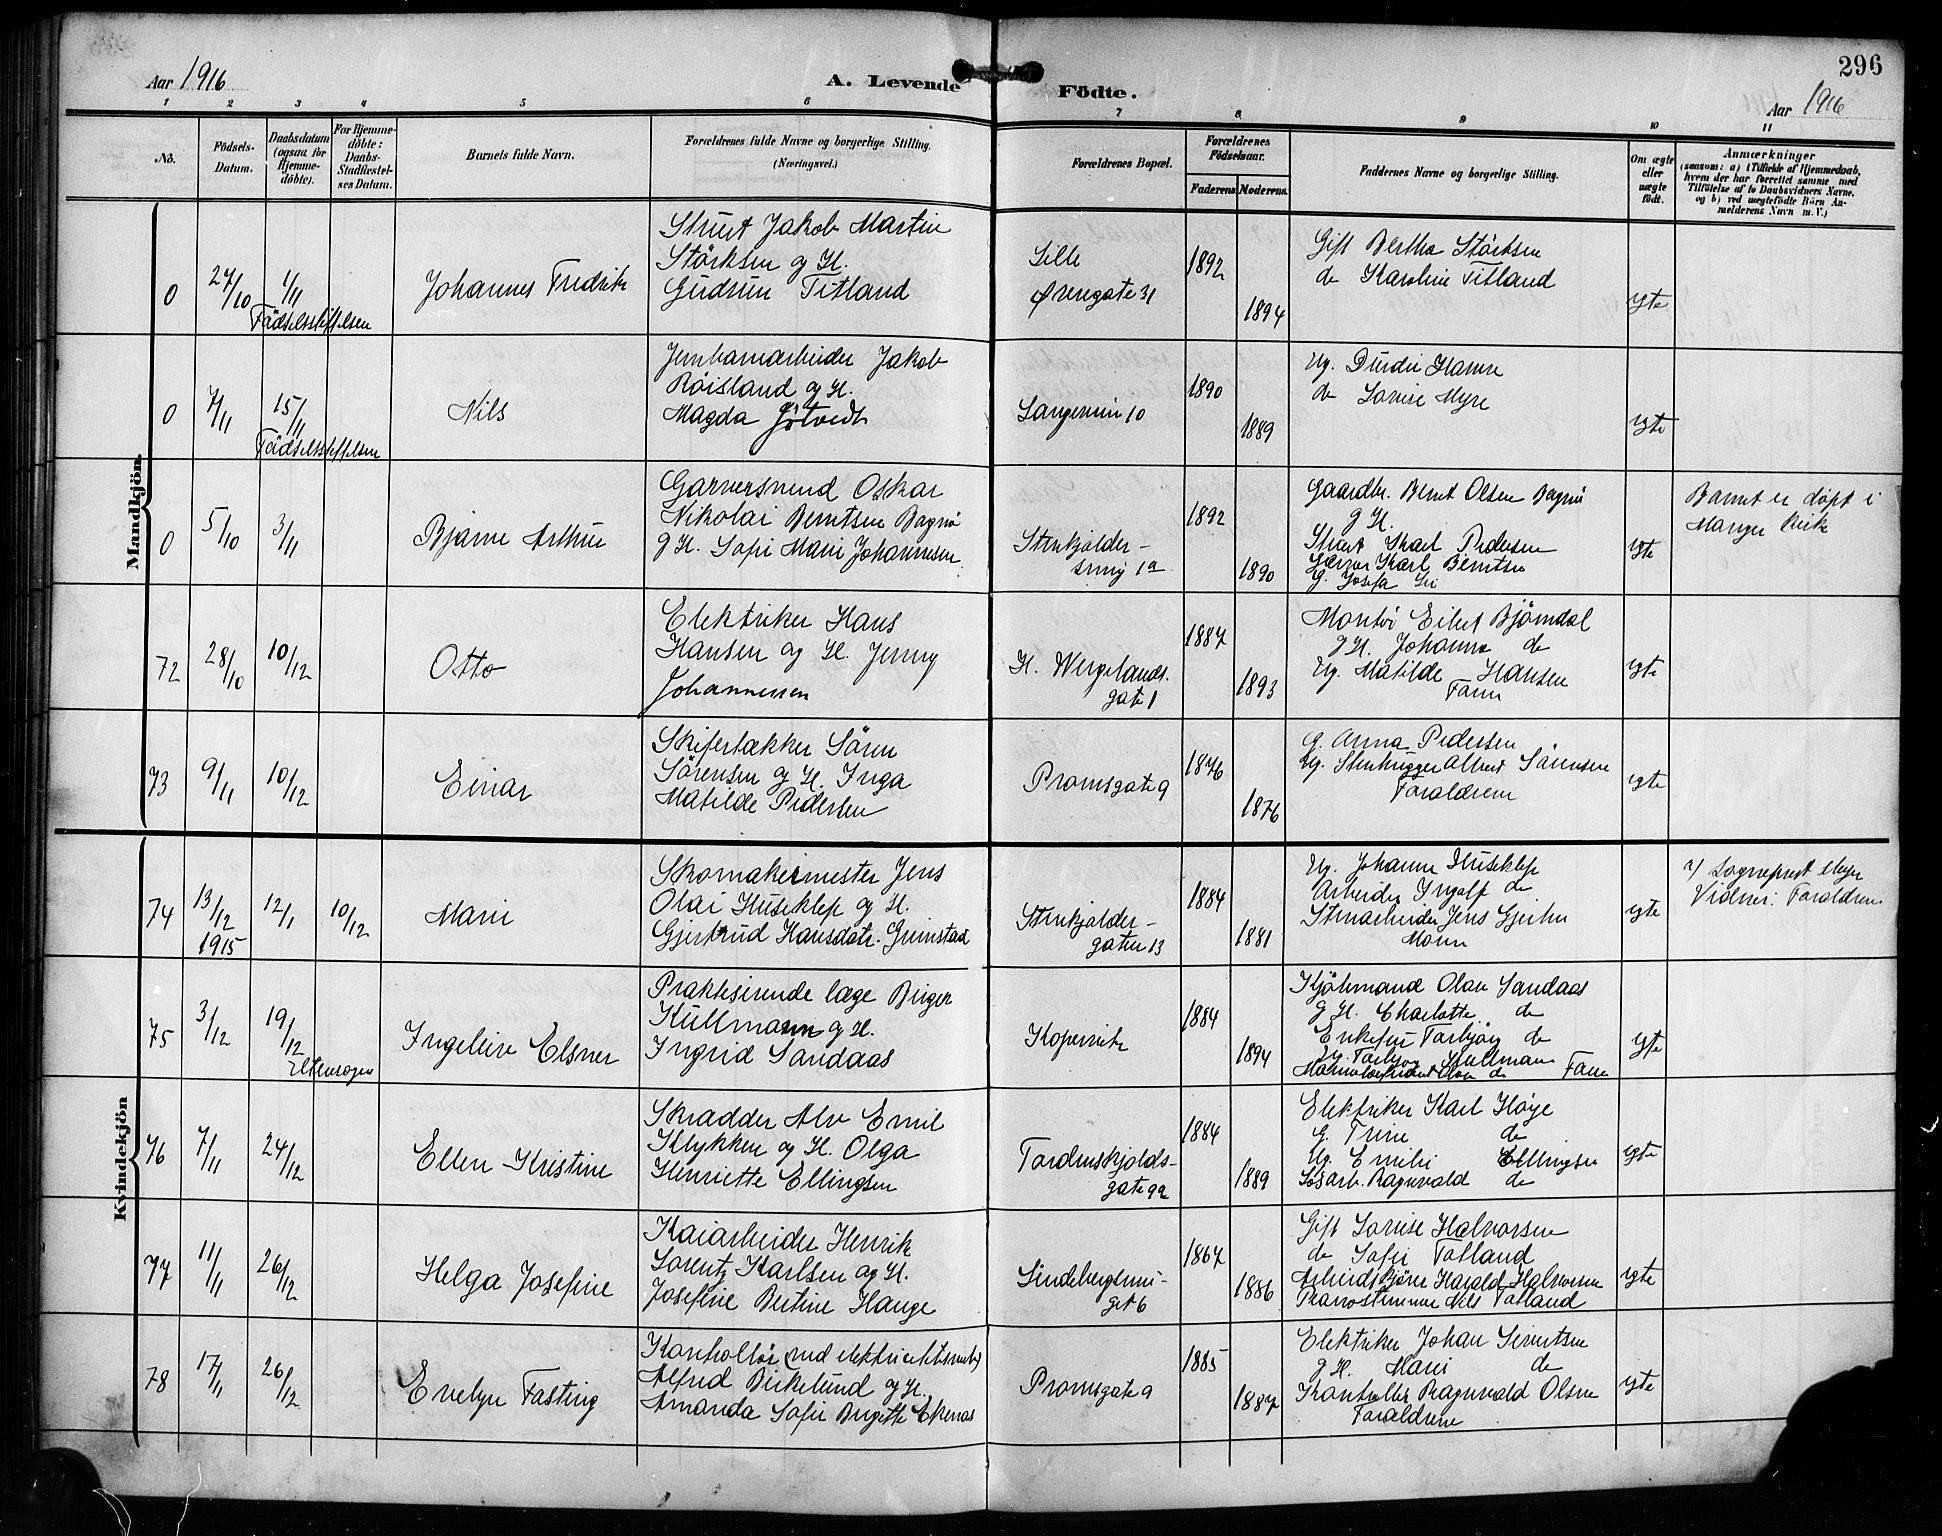 296
Aar 1916
A. Levende
Födte.
Aar 1916
1 2 3 4 5 6 7 8 9 10 11
No.
Födsels-
Datum.
Daabsdatum
(ogsaa for
Hjemme-
döbte).
For Hjemme-
döbte:
Daabs-
Stadfæstel-
ses Datum.
Barnets fulde Navn.
Forældrenes fulde Navne og borgerlige Stilling.
(Næringsvei.)
Forældrenes Bopæl.
Forældrenes
Födselsaar.
Faderens Moderens
Faddernes Navne og borgerlige Stilling.
Om ægte
eller
uægte
födt.
Anmærkninger
(saasom: a) i Tilfælde af Hjemmedaab,
hvem der har forrettet samme med
Tilföielse af to Daabsvidners Navne,
og b) ved uægtefödte Börn An-
melderens Navn m. V.)
Mandkjön.
0
27/10
1/11
Födselsstiftelsen
Johannes Fredrik
Struert Jakob Martin
Störksen og H.
Gudrun Titland
Lille
Øvregate 31
1892
1894
Gift Bertha Störksen
do Karoline Titland
egte
0
7/11
15/11
Födselsstiftelsen
Nils
Jernbanearbeider Jakob
Röisland og H.
Magda
1890
1889
do Lovise Myre
egte
0
5/10
3/11
Bjarne Arthur
Garversvend Oskar
Nikolai Berntsen Bagnö
g H. Sofie Marie Johannesen
Stenkjelder-
smug 1a
1892
1890
Gaardbr. Bernt Olsen Bagnö
g H.
Karl Pedersen
Garver Karl Berntsen
G. Josefa
egte
Barnet er døpt i
Manger kirke
72
28/10
10/12
Otto
Elektriker Hans
Hansen og H. Jenny
Johannessen
H. Wergelands.
gate 1
1887
1893
Montör Eilert Bjørndal
g H. Johanna do
Ug. Matilde Hansen
Faren
egte
73
9/11
10/12
Einar
Skifertækker Sören
Sörensen og H. Inga
Matilde Pedersen
Promsgate 9
1876
1876
G. Anna Pedersen
Ug. Stenhugger Albert Sörensen
Forældrene
egte
Kvindekjön
74
13/12
1915
12/1
10/12
Marie
Skomakermester Jens
Olai Huseklep og H.
Gjertrud Hansdatr. Grimstad
Stenkjelder-
gaten 13
1884
1881
Ug. Johanne Huseklep
Arbeider Ingolf do
Stenarbeider Jens
Moren
egte
v/ Sogneprest Meyer
Vidner: Forældrene
75
3/12
19/12
Ingeleive Elsner
Praktiserende læge Birger
Küllmann og H.
Ingrid Sandaas
Kopervik
1884
1894
Kjöbmand Olav Sandaas
g H. Charlotte do
Enkefru Torbjörg do
Ug. Torbjörg Küllmann
do
Faren
egte
76
7/11
24/12
Ellen Kristine
Skrædder Alv Emil
Klykken og H. Olga
Henriette Ellingsen
Tordenskjolds-
gate 9a
1884
1889
Elektriker Karl Höye
G. Trine do
Ug. Emilie Ellingsen
Løsarb. Ragnvald do
egte
77
11/11
26/12
Helga Josefine
Kaiarbeider Henrik
Lorentz Karlsen og H.
Josefine Bertine Hauge
1867
1886
Gift Lovise Halvorsen
do Sofie Totland
Harald Halvorsen
Nils Totland
egte
78
17/11
26/12
Evelyn Fasting
Kontrollör (ved elektricitetsverk)
Alfred Birkelund og H.
Amanda Sofie Birgitte Ekenæs
Promsgate 9
1885
1887
Elektriker Johan Sivertsen
g H. Marie do
Kontrollör Ragnvald Olsen
Forældrene
egte